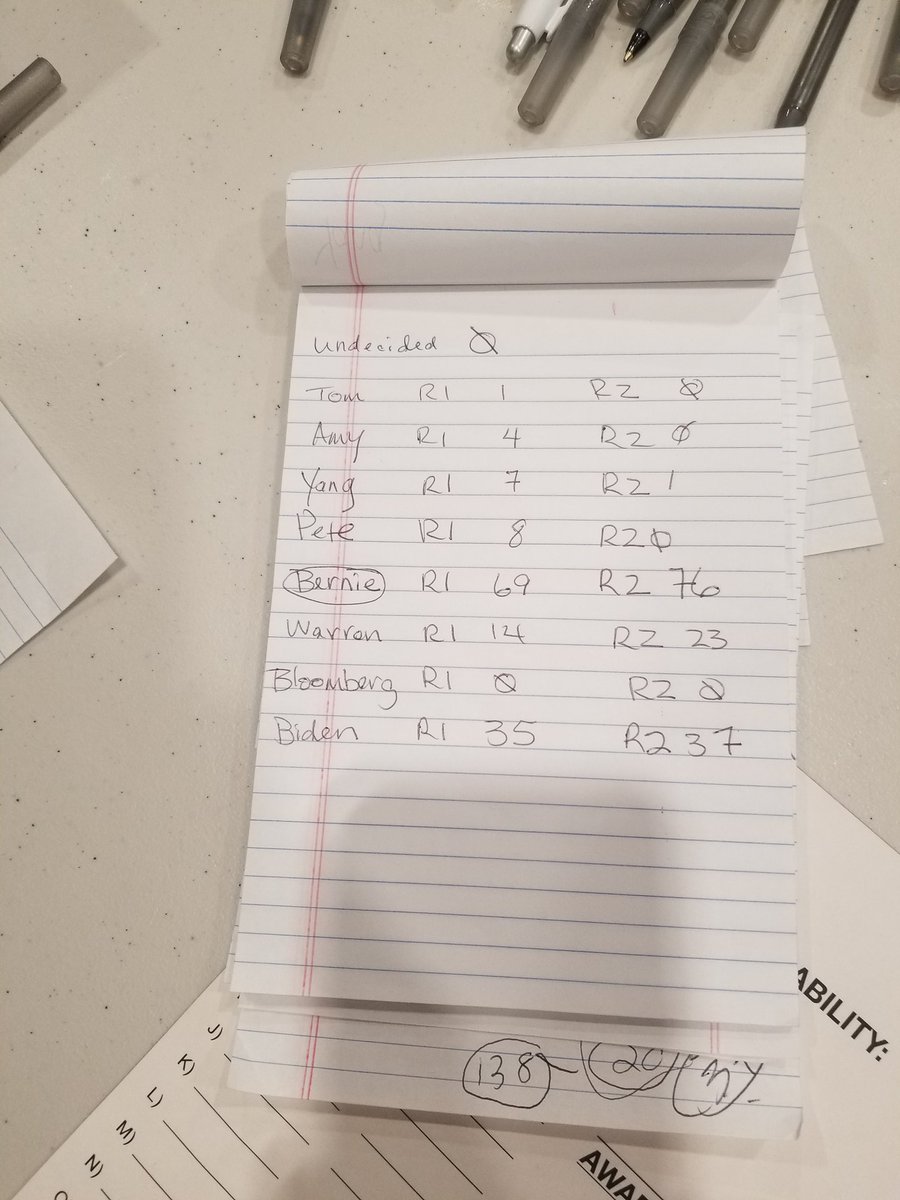 undecided Ø
Tom R1 1 R2 Ø
Amy R1 4 R2 Ø
Yang R1 7 R2 1
Pete R1 8 R2 Ø
Bernie R1 69 R2 76
Warren R1 14 R2 23
Bloomberg R1 Ø R2 Ø
Biden R1 35 R2 37
ABILITY:
138 20
J)
K)
L)
M)
N)
AWAR